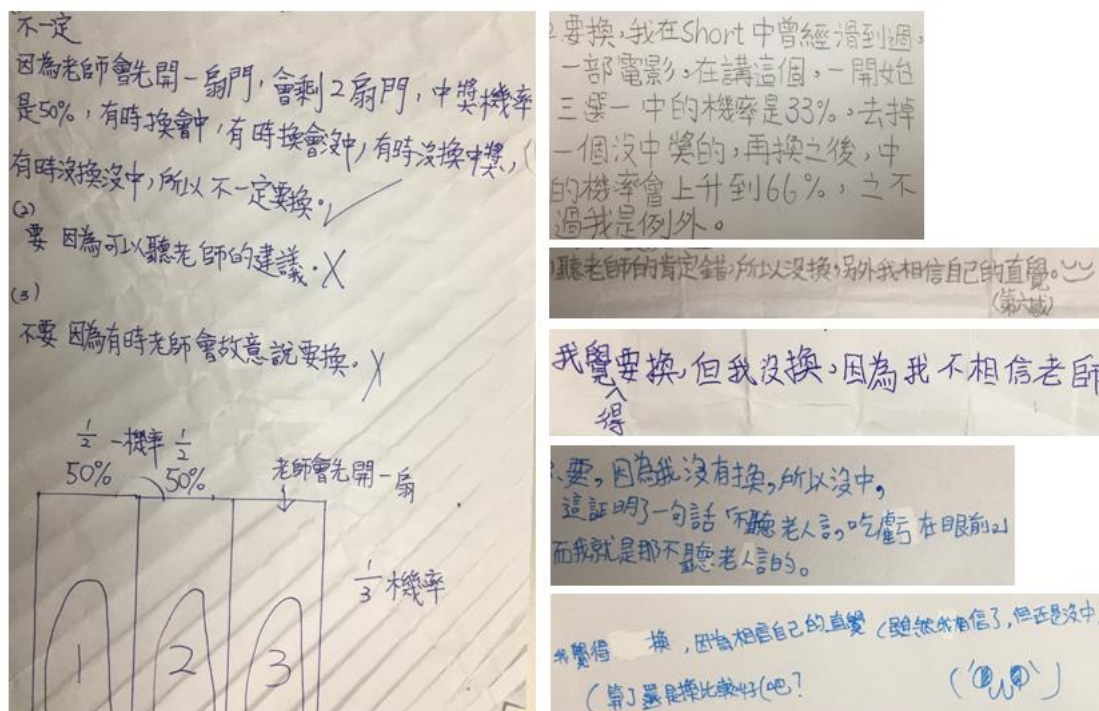 不一定
因為老師會先開一扇門，會剩2扇門，中獎機率
是50%，有時換會中，有時換會沒中，有時沒換中獎，
有時沒換沒中，所以不一定要換。
(2)
要 因為可以聽老師的建議。
(3)
不要 因為有時老師會故意說要換。
1/2 一機率 1/2
50% 50% 老師會先開一扇
1/3 機率
1 2 3
要換，我在Short中曾經滑到過，
一部電影，在講這個，一開始
三選一中的機率是33%，去掉
一個沒中獎的，再換之後，中
的機率會上升到66%，之不
過我是例外。
聽老師的肯定錯，所以沒換，另外我相信自己的直覺。
(第六感)
我覺要換，但我沒換，因為我不相信老師
得
要，因為我沒有換，所以沒中，
這証明了一句話「不聽老人言，吃虧在眼前。」
而我就是那不聽老人言的。
覺得 換，因為相信自己的直覺（雖然我相信了，但还是沒中
（算了還是換比較好（吧？